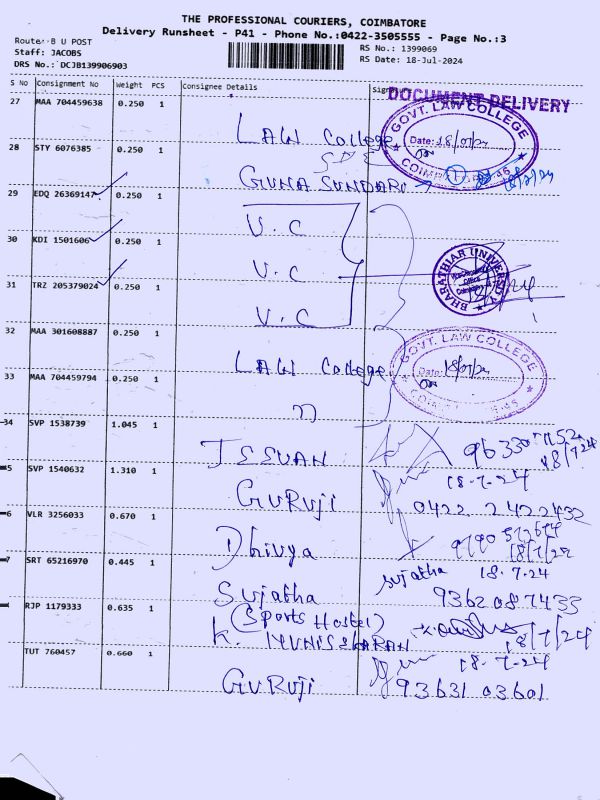 THE PROFESSIONAL COURIERS, COIMBATORE
Delivery Runsheet - P41 - Phone No.:0422-3505555 - Page No.:3
Route:-B U POST
Staff: JACOBS
DRS No.: DCJB139906903
RS No.: 1399069
RS Date: 18-Jul-2024
S No Consignment No Weight PCS Consignee Details Signature
DOCUMENT DELIVERY
27 MAA 704459638 0.250 1
LAW College
GOVT. LAW COLLEGE
Date: 18/07/24
28 STY 6076385 0.250 1
GUNA SUNDARI
29 EDQ 26369147 0.250 1
V.C
30 KDI 1501606 0.250 1
V.C
BHARATHIAR UNIVERSITY
31 TRZ 205379024 0.250 1
V.C
32 MAA 301608887 0.250 1
LAW College
GOVT. LAW COLLEGE
Date: 18/07/24
33 MAA 704459794 0.250 1
"
34 SVP 1538739 1.045 1
JESUAN
18/7/24
5 SVP 1540632 1.310 1
18-7-24
GURUJI
0422 2422432
6 VLR 3256033 0.670 1
Dhivya
7 SRT 65216970 0.445 1
sujatha 18.7.24
Sujatha
9362087433
RJP 1179333 0.635 1
(Sports Hostel)
K. MUNISEKARAN
18/7/24
TUT 760457 0.660 1
18-7-24
GURUJI
93631 03601